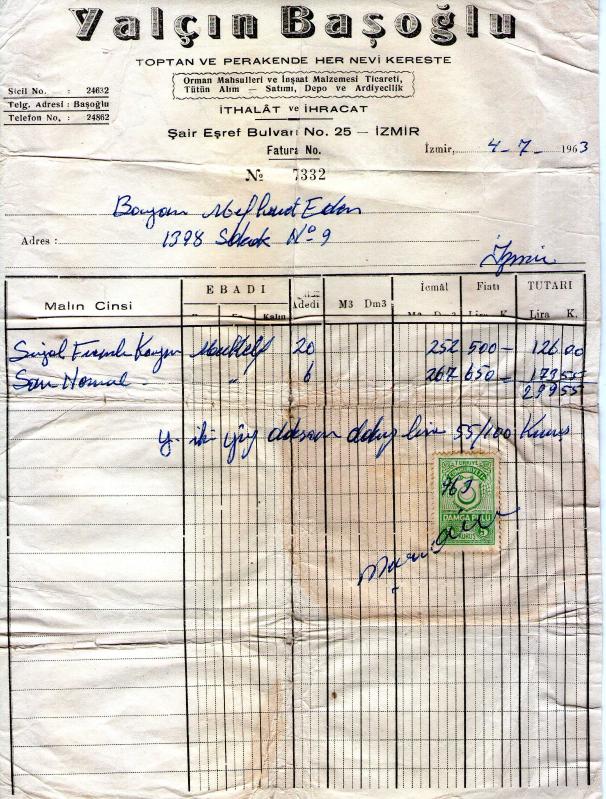 Yalçın Başoğlu
TOPTAN VE PERAKENDE HER NEVİ KERESTE
Orman Mahsulleri ve İnşaat Malzemesi Ticareti,
Tütün Alım — Satımı, Depo ve Ardiyecilik
Sicil No. : 24632
Telg. Adresi : Başoğlu
Telefon No. : 24862
İTHALÂT ve İHRACAT
Şair Eşref Bulvarı No. 25 — İZMİR
Fatura No.
İzmir, 4-7-1963
№ 7332
Bayan
Adres : 1398 Sokak Nº 9
İzmir
Malın Cinsi EBADI Adedi M3 Dm3 İcmâl Fiatı TUTARI
Kalın Lira K.
20 252 500- 126.00
Normal - " 6 267 650-
299 55
y. iki yüz doksan dokuz lira 55/100 Kuruş
963
TÜRKİYE
CUMHURİYETİ
DAMGA PULU
5
KURUŞ